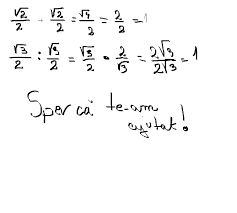 √2/2 · √2/2 = √4/2 = 2/2 = 1
√3/2 : √3/2 = √3/2 · 2/√3 = 2√3/2√3 = 1
Sper că te-am
ajutat!